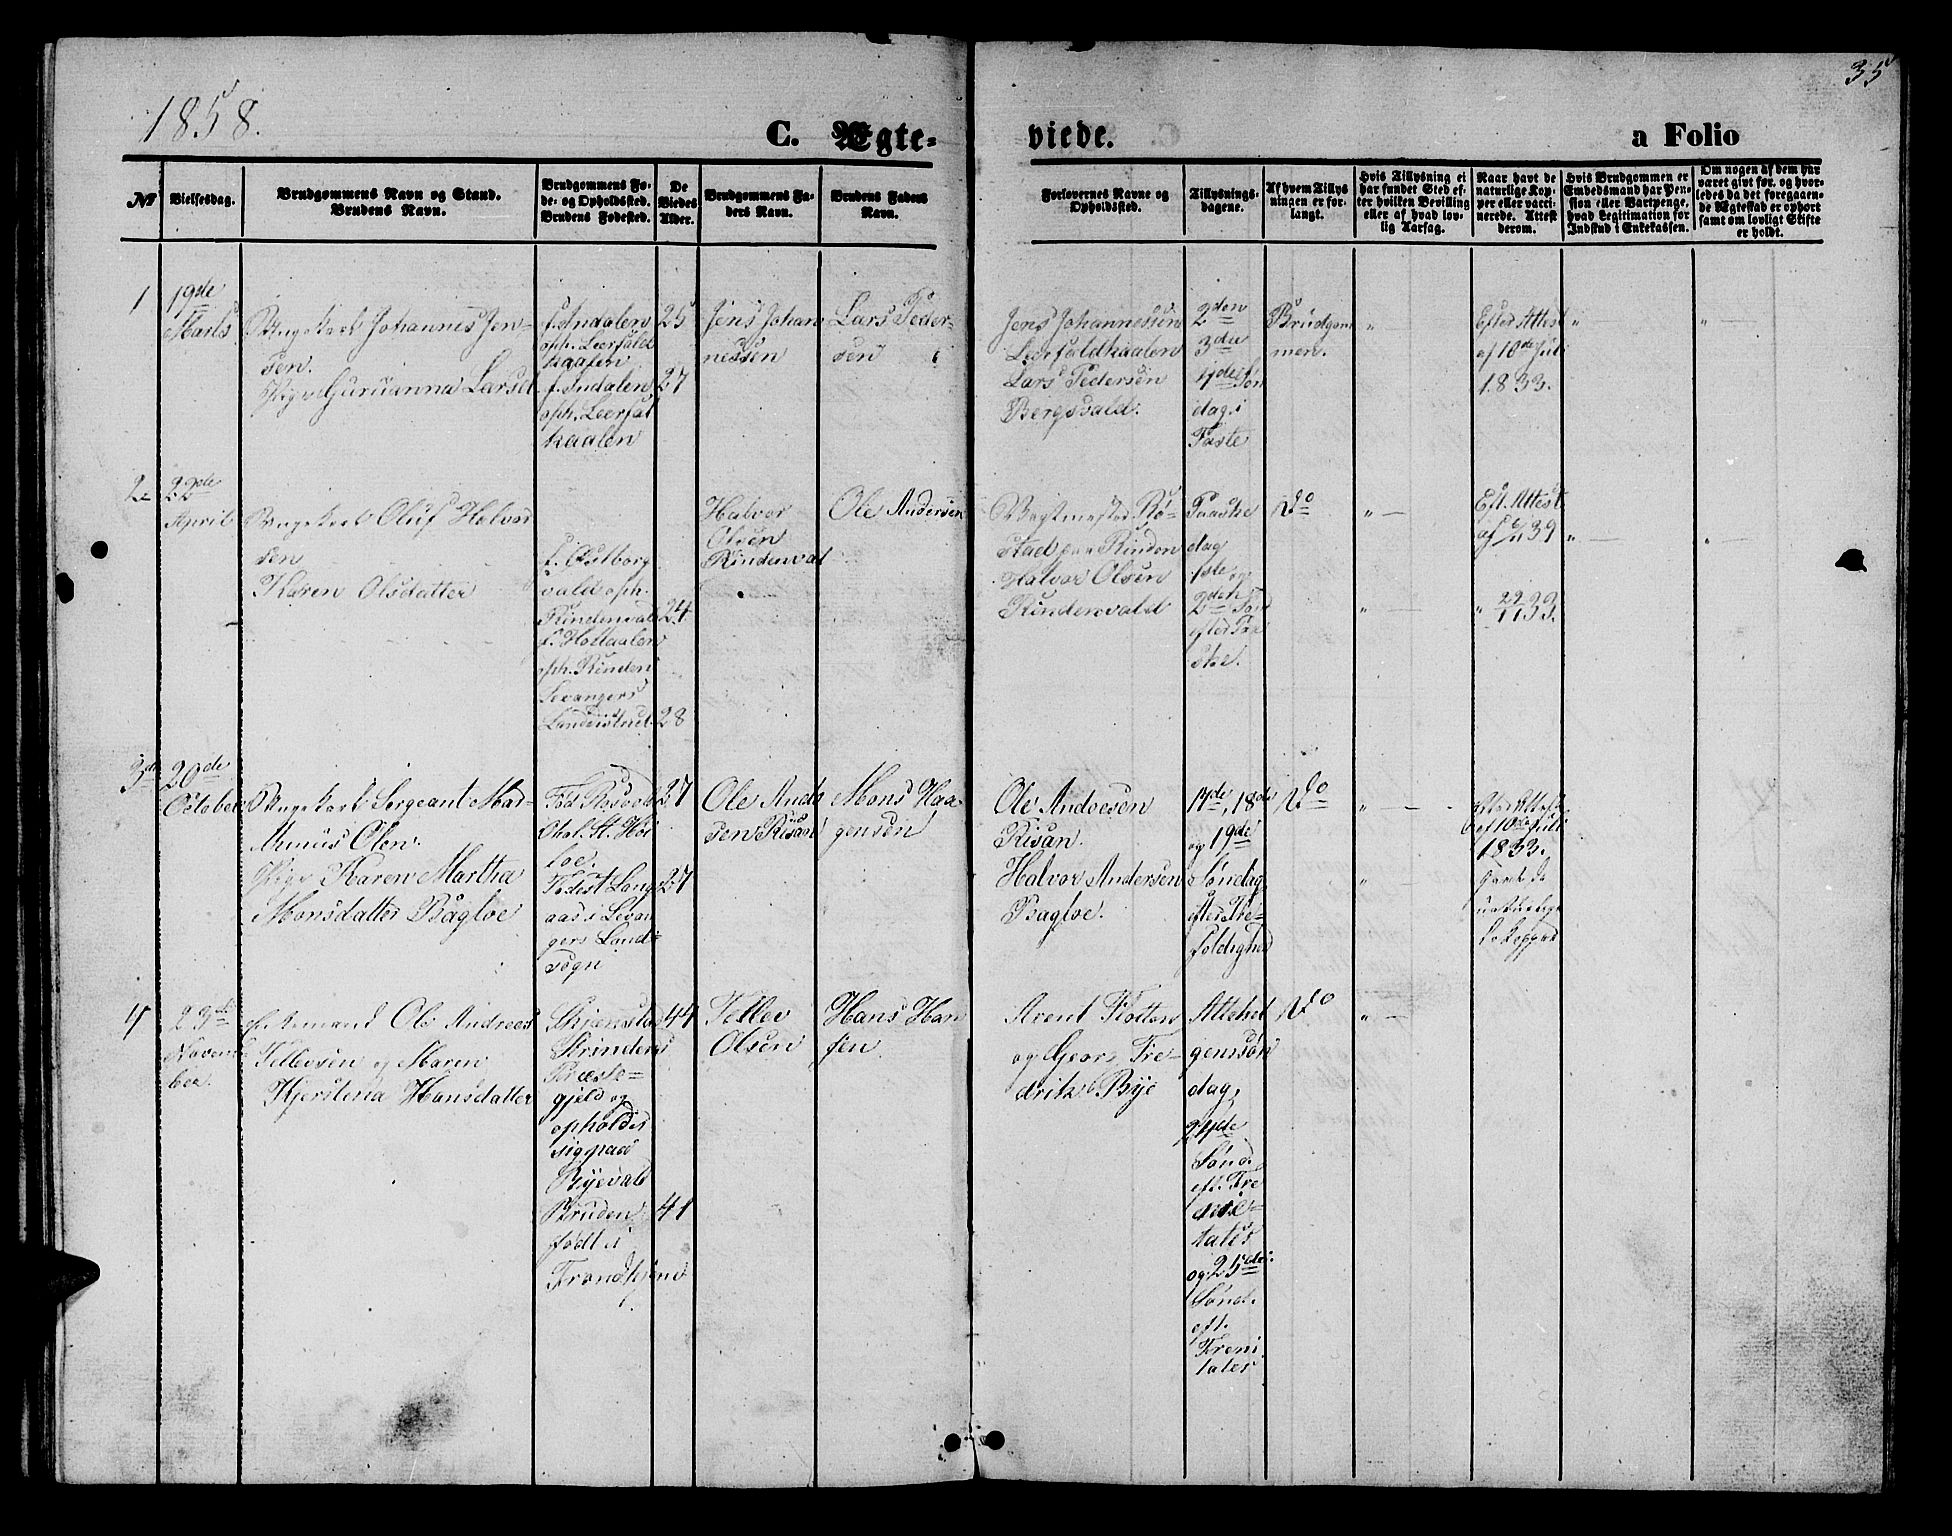 35
1858.
C. Ægte-
viede.
a Folio
№
Vielsesdag.
Brudgommens Navn og Stand.
Brudens Navn.
Brudgommens Fo-
de- og Opholdssted.
Brudens Fødested.
De
Viedes
Alder.
Brudgommens Fa-
ders Navn.
Brudens Faders
Navn.
Forlovernes Navne og
Opholdssted.
Tillysnings-
dagene.
Af hvem Tillys
ningen er for-
langt.
Hvis Tillysning ei
har fundet Sted ef-
ter hvilken Bevilling
eller af hvad lov-
lig Aarsag.
Naar havt de
naturlige Kop-
per eller vacci-
nerede. Attest
derom.
Hvis Brudgommen er
Embedsmand har Pen-
sion eller Vartpenge,
hvad Legitimation for
Indskud i Enkekassen.
Om nogen af dem har
været givt før, og hvor-
ledes da det foregaaen-
de Ægteskab er ophørt
samt om lovligt Skifte
er holdt.
1
19de
Marts
Ungekarl Johannes Jen-
sen.
Pige Gurianna Larsd
f. Indalen
oph. Leerfald
kaalen
f. Indalen
oph. Leerfal
kaalen
25
27
Jens Johan
nessen
Lars Peder-
sen
Jens Johannessen
Leerfaldkaalen
Lars Pedersen
Bergsvald.
2den
3die
4de Søn
dag i
Faste
Brudgom
men.
"
Efter Attest
af 10de Juli
1833.
"
"
2
22de
April
Ungekarl Oluf Halvor
sen
Karen Olsdatter
f. Østborg
vald oph.
Rindenvald
f. Holtaalen
oph. Rinden
Levangers
Landdistrict
24
28
Halvor
Olsen
Rindenval
Ole Andersen
Vagtmester Rø-
stad paa Rinden
Halvor Olsen
Rindenvald
Paaske
dag
1ste og
2den Sønd
efter Paa
ske.
Do
"
"
Eft. Attest
af 6/11 39
" 22/11 33.
"
"
3de
20de
October
Ungekarl Sergeant Mar-
Munus Olsen
Pige Karen Martha
Monsdatter Bagloe
Fød
Fødest. Lang
aas i Levan
gers Land-
sogn
27
27
Ole Anders
sen Risan
Mons Haa-
gensen
Ole Andresen
Risan.
Halvor Andersen
Bagloe.
17de, 18de
og 19de
Søndag
efter Tre-
foldighed
Do
"
"
Efter Attest
af 10de Juli
1833.
havt de
naturlige
Kopper
4
23de
Novem
ber.
Ole Andreas
Tellevsen og Maren
Kjerstena Hansdatter
Skjenstad
Strindens
Præste-
gjeld og
opholder
sig paa
Byevald
Bruden
født i
Trondhjem
44
41
Tellev
Olsen
Hans Han
sen
Arent Flotten
og Georg Fre-
drik Bye
Allehel
gensson
dag,
24de
Sønd.
eft. Tre
nita-
tatis
og 25de
Sønd.
eft.
Treni
tates
Do
"